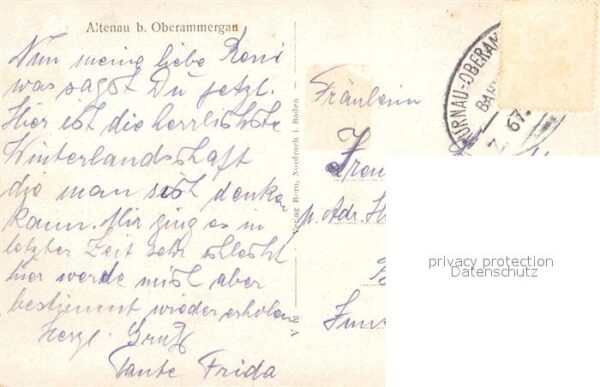 Altenau b. Oberammergau
Nun meine liebe Reni
was sagst Du jetzt.
Hier ist die herrlichste
Winterlandschaft
die man sich denken
kann. Mir ging es in
letzter Zeit sehr schlecht
hier werde mich aber
bestimmt wieder erholen
Herzl. Gruß
Tante Frida
Verlag Horn, Nordrach i. Baden
Fräulein
p. Adr. H
MURNAU-OBERAM
BAH
67.
privacy protection
Datenschutz